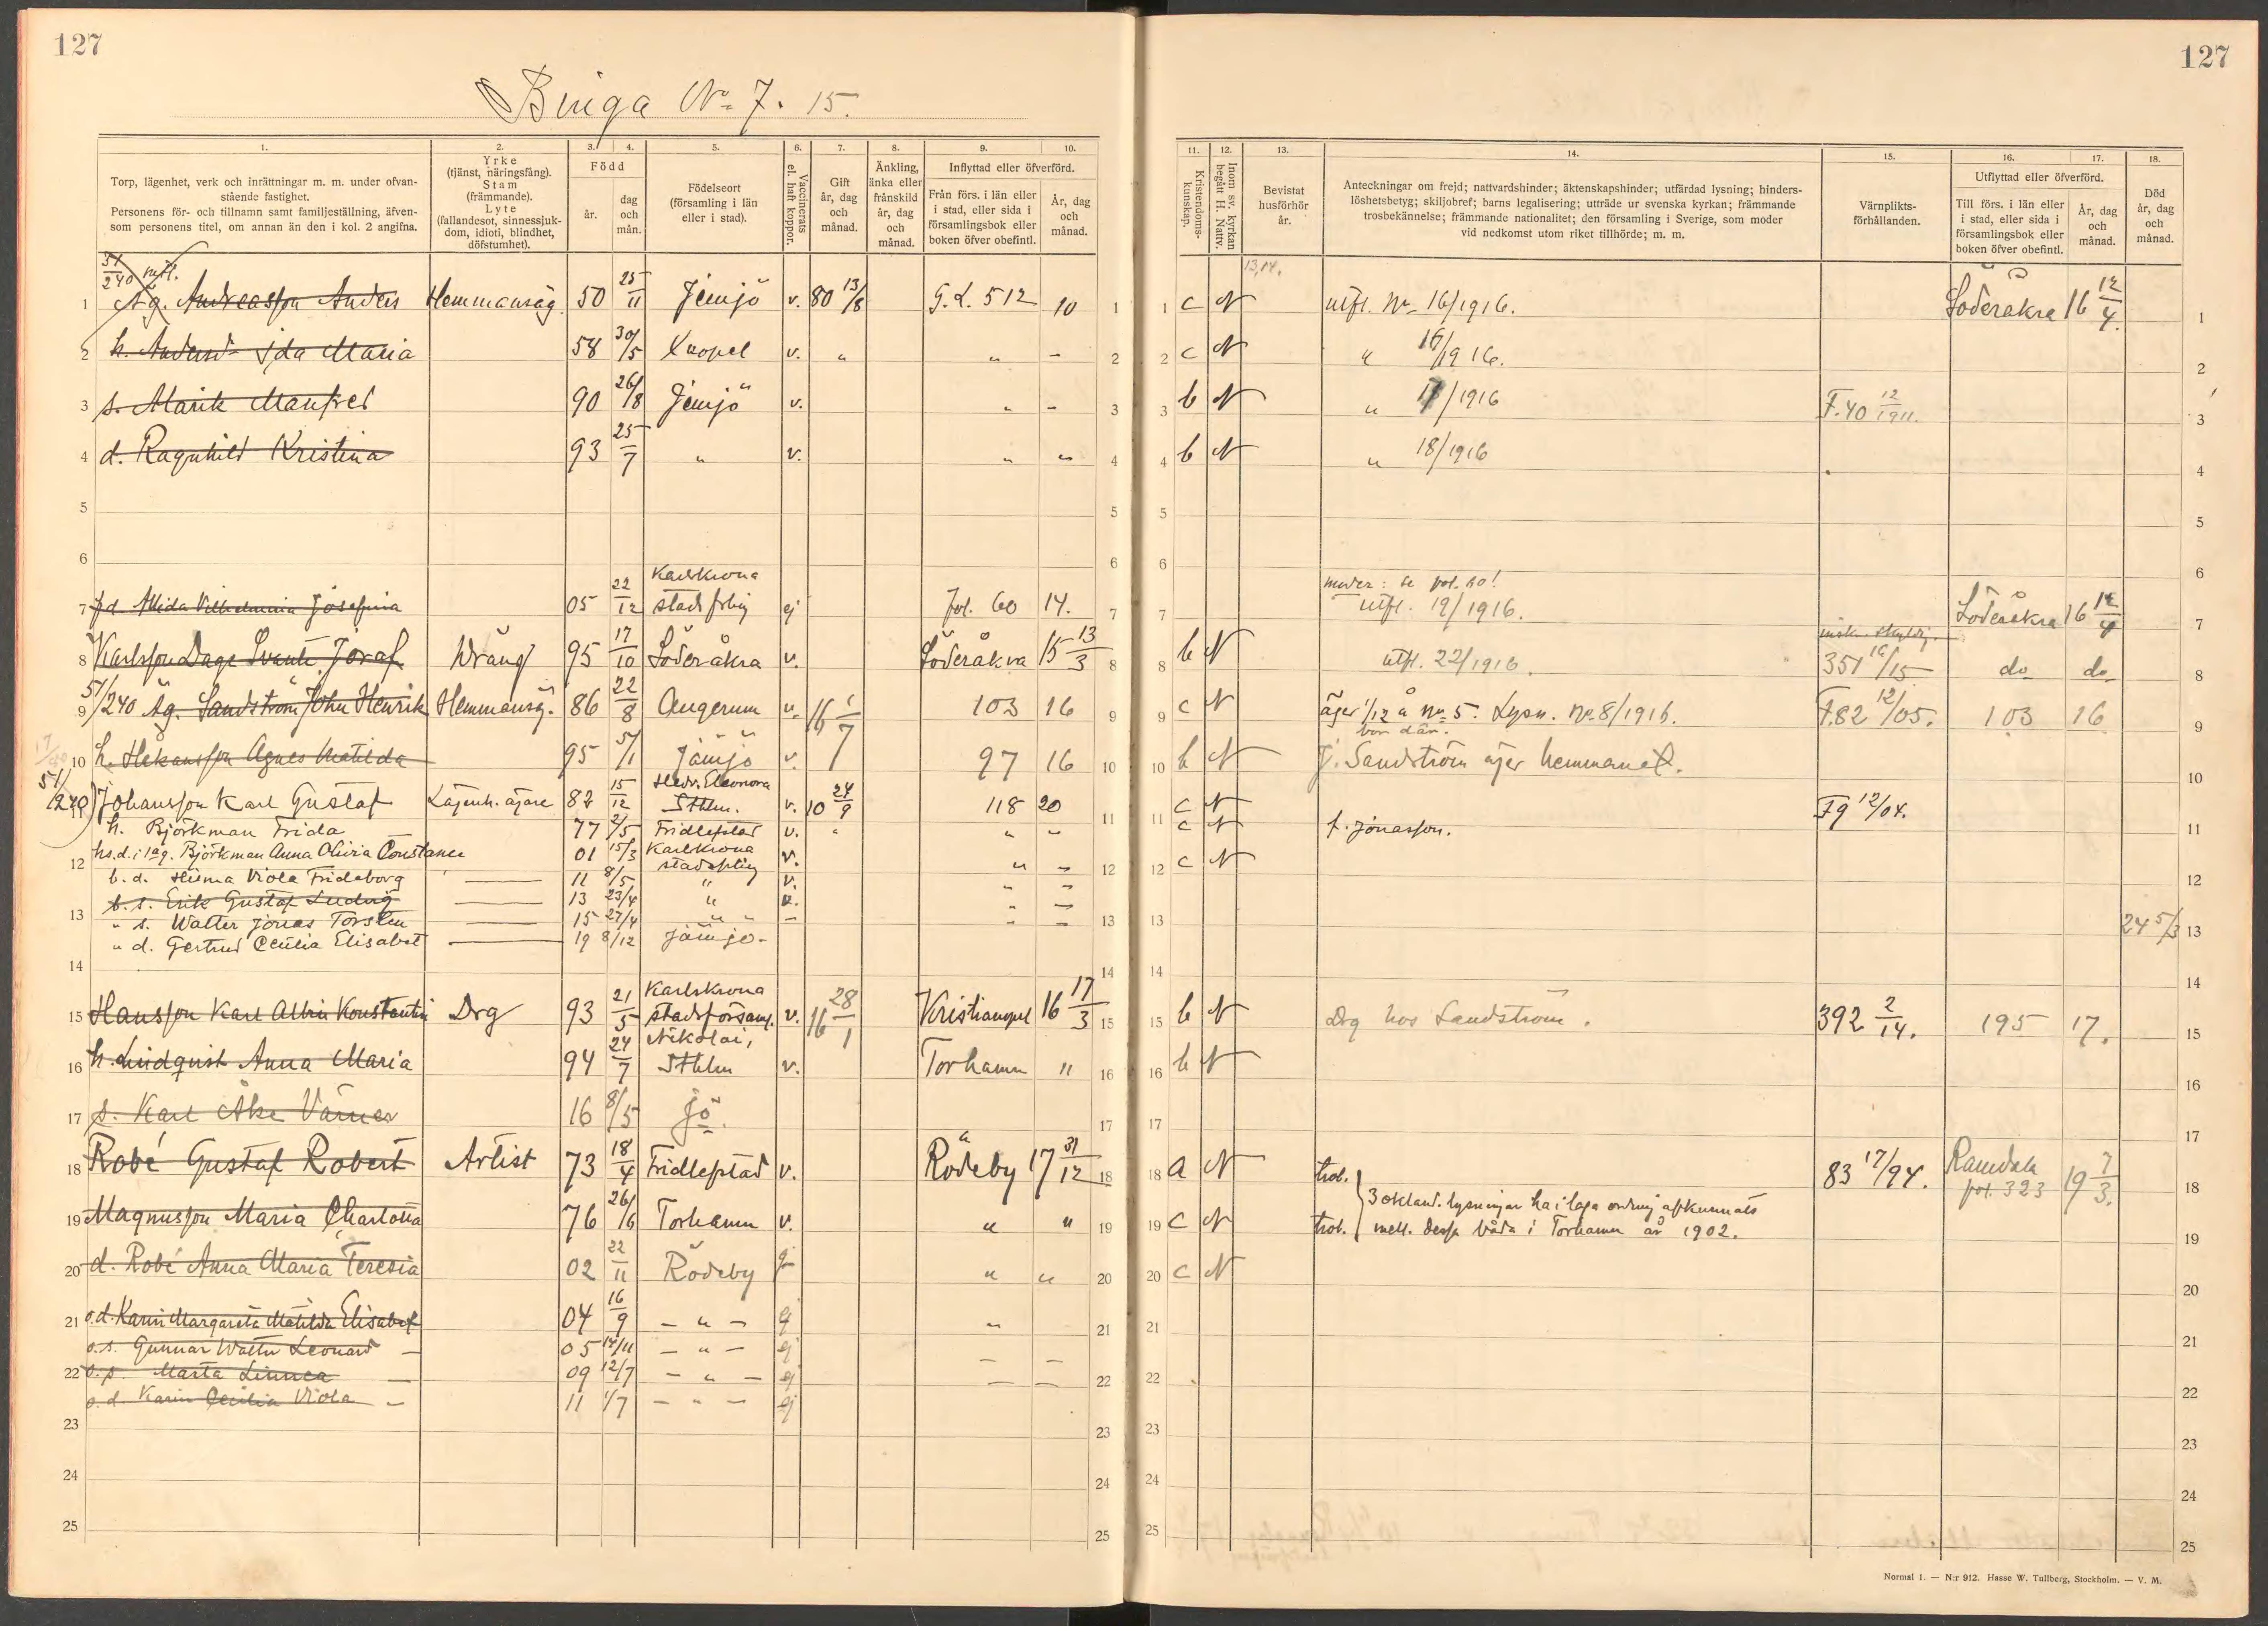 127
127
Binga No 7. 15.
1.
2.
3.
4.
5.
6.
7.
8.
9.
10.
Torp, lägenhet, verk och inrättningar m. m. under ofvan-
stående fastighet.
Personens för- och tillnamn samt familjeställning, äfven-
som personens titel, om annan än den i kol. 2 angifna.
Yrke
(tjänst, näringsfång).
Stam
(främmande).
Lyte
(fallandesot, sinnessjuk-
dom, idioti, blindhet,
döfstumhet).
Född
år.
dag
och
mån.
Födelseort
(församling i län
eller i stad).
Vaccinerats
el. haft koppor.
Gift
år, dag
och
månad.
Änkling,
änka eller
frånskild
år, dag
och
månad.
Inflyttad eller öfverförd.
Från förs. i län eller
i stad, eller sida i
församlingsbok eller
boken öfver obefintl.
År, dag
och
månad.
11.
12.
13.
14.
15.
16.
17.
18.
Kristendoms-
kunskap.
Inom sv. kyrkan
begått H. Nattv.
Bevistat
husförhör
år.
Anteckningar om frejd; nattvardshinder; äktenskapshinder; utfärdad lysning; hinders-
löshetsbetyg; skiljobref; barns legalisering; utträde ur svenska kyrkan; främmande
trosbekännelse; främmande nationalitet; den församling i Sverige, som moder
vid nedkomst utom riket tillhörde; m. m.
Värnplikts-
förhållanden.
Utflyttad eller öfverförd.
Till förs. i län eller
i stad, eller sida i
församlingsbok eller
boken öfver obefintl.
År, dag
och
månad.
Död
år, dag
och
månad.
51/240 mtl.
1 Äg. Andreasson Anders Hemmansäg. 50 25/11 Jemjö v. 80 13/8 G. L. 512 10 1
1 c N 13,14. utfl. No 16/1916. Söderåkra 16 12/4. 1
2 h. Ida Maria 58 30/5 v. " " - 2
2 c N " 16/1916. 2
3 s. Manfred 90 26/8 Jemjö v. " - 3
3 b N " 17/1916 F. 40 12/1911. 3
4 d. Ragnhild Kristina 93 25/7 " v. " " 4
4 b N " 18/1916 4
5 5 5 5
6 6 6 6
7 Josefina 05 22/12 Karlskrona stadsfblg ej fol. 60 14. 7
7 moder: se fol. 60! utfl. 19/1916. Söderåkra 16 12/4 7
8 Karlsson Dage Svante Joraf Dräng 95 17/10 Söderåkra v. Söderåkra 15 13/3 8
8 b N utfl. 22/1916. 351 do do 8
51/240
9 Äg. Sandström John Henrik Hemmansäg. 86 22/8 Augerum v. 16 1/7 103 16 9
9 c N äger 1/12 å No 5. Lysn. No 8/1916. F. 82 12/05. 103 16 9
bor där.
10 h. Håkansson Agnes Matilda 95 5/1 Jämjö v. 97 16 10
10 b N J. Sandström äger hemmanet. 10
51/240
11 Johansson Karl Gustaf Lägenh. ägare 82 15/12 Hedv. Eleonora Sthlm. v. 10 24/9 118 20 11
11 c N F9 12/04. 11
h. Björkman Frida 77 2/5 Fridlefstad v. " " "
c N f. Jonasson.
12 hs. d. i 1a g. Björkman Anna Olivia Constance 01 15/3 Karlskrona stadsfblg v. " - 12
12 c N 12
b. d. Hilma Viola Frideborg 11 8/5 " v. " -
b. s. Erik Gustaf Ludvig 13 23/4 " v. " -
13 " s. Walter Jonas Torsten 15 27/4 " - " - 13
13 24 5/3 13
" d. Gertrud Cecilia Elisabet 19 8/12 Jämjö -
14 14 14 14
15 Hansson Karl Albin Konstantin Drg 93 21/5 Karlskrona stadsförsaml. v. 16 28/1 Kristianopel 16 17/3 15
15 b N Drg hos Sandström. 392 2/14. 195 17. 15
16 h. Lindquist Anna Maria 94 24/7 Nikolai, Sthlm v. Torhamn " 16
16 b N 16
17 s. Karl Åke Värner 16 8/5 Jö. 17
17 17
18 Robé Gustaf Robert Artist 73 18/4 Fridlefstad v. Rödeby 17 31/12 18
18 a N trol. 83 17/94. Ramdala fol. 323 19 7/3. 18
3 okland. lysningar ha i laga ordning afkunnats
19 Magnusson Maria Charlotta 76 26/6 Torhamn v. " " 19
19 c N trol. mell. dessa båda i Torhamn år 1902. 19
20 d. Robé Anna Maria Teresia 02 22/11 Rödeby ej " " 20
20 c N 20
21 o. d. Karin Margareta Matilda Elisabet 04 16/9 - " - ej " 21
21 21
o. s. Gunnar Walter Leonard - 05 14/11 - " - ej - -
22 Märta Linnea - 09 12/7 - " - ej - - 22
22 22
o. d. Karin Cecilia Viola - 11 1/7 - " - ej
23 23 23 23
24 24 24 24
25 25 25 25
Normal 1. — N:r 912. Hasse W. Tullberg, Stockholm. — V. M.